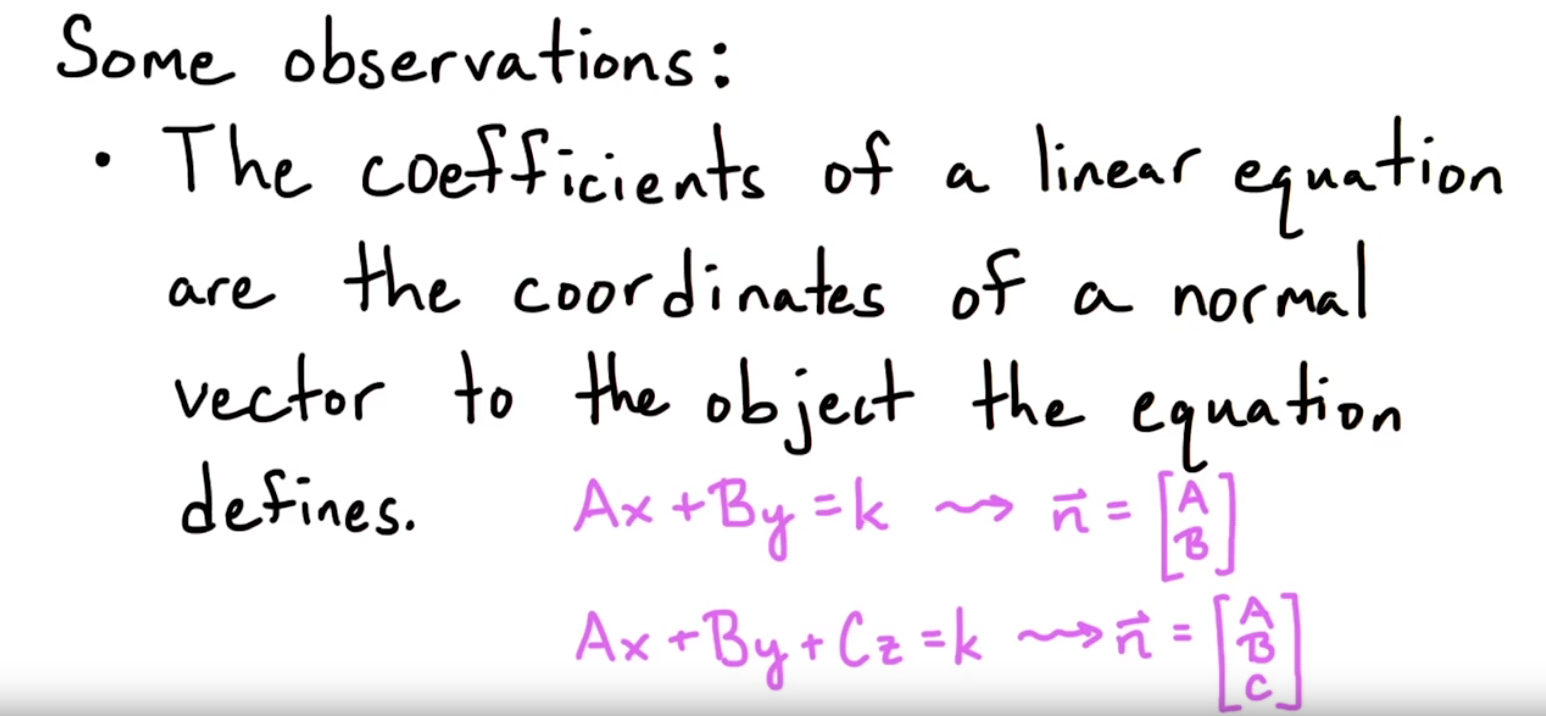 Some observations:
• The coefficients of a linear equation
are the coordinates of a normal
vector to the object the equation
defines. Ax + By = k ⇝ n⃗ = [A B]
Ax + By + Cz = k ⇝ n⃗ = [A B C]